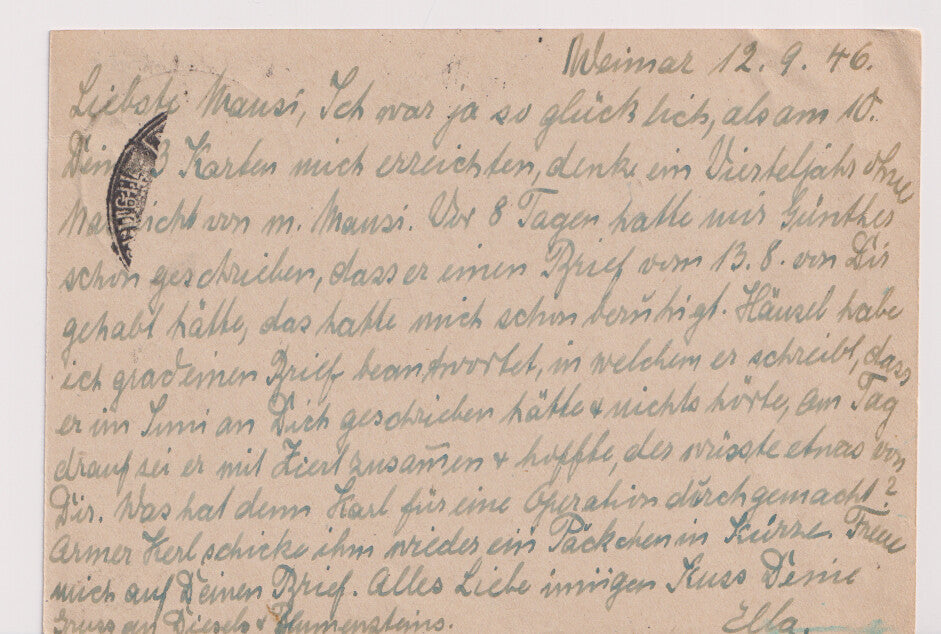 Weimar 12. 9. 46.
Liebste Mausi, Ich war ja so glücklich, als am 10.
Deine 3 Karten mich erreichten, denke ein Vierteljahr ohne
Nachricht von m. Mausi. Vor 8 Tagen hatte mir Günther
schon geschrieben, dass er einen Brief vom 13. 8. von Dir
gehabt hätte, das hatte mich schon beruhigt. Häusel habe
ich grad einen Brief beantwortet, in welchem er schreibt, dass
er im Juni an Dich geschrieben hätte & nichts hörte, am Tag
drauf sei er mit Zierl zusam̅en & hoffte, der wüsste etwas von
Dir. Was hat denn Karl für eine Operation durchgemacht?
Armer Kerl schicke ihm wieder ein Päckchen in Kürze. Freue
mich auf Deinen Brief. Alles Liebe innigen Kuss Deine
Gruss an Diesels & Blumensteins. Ella.